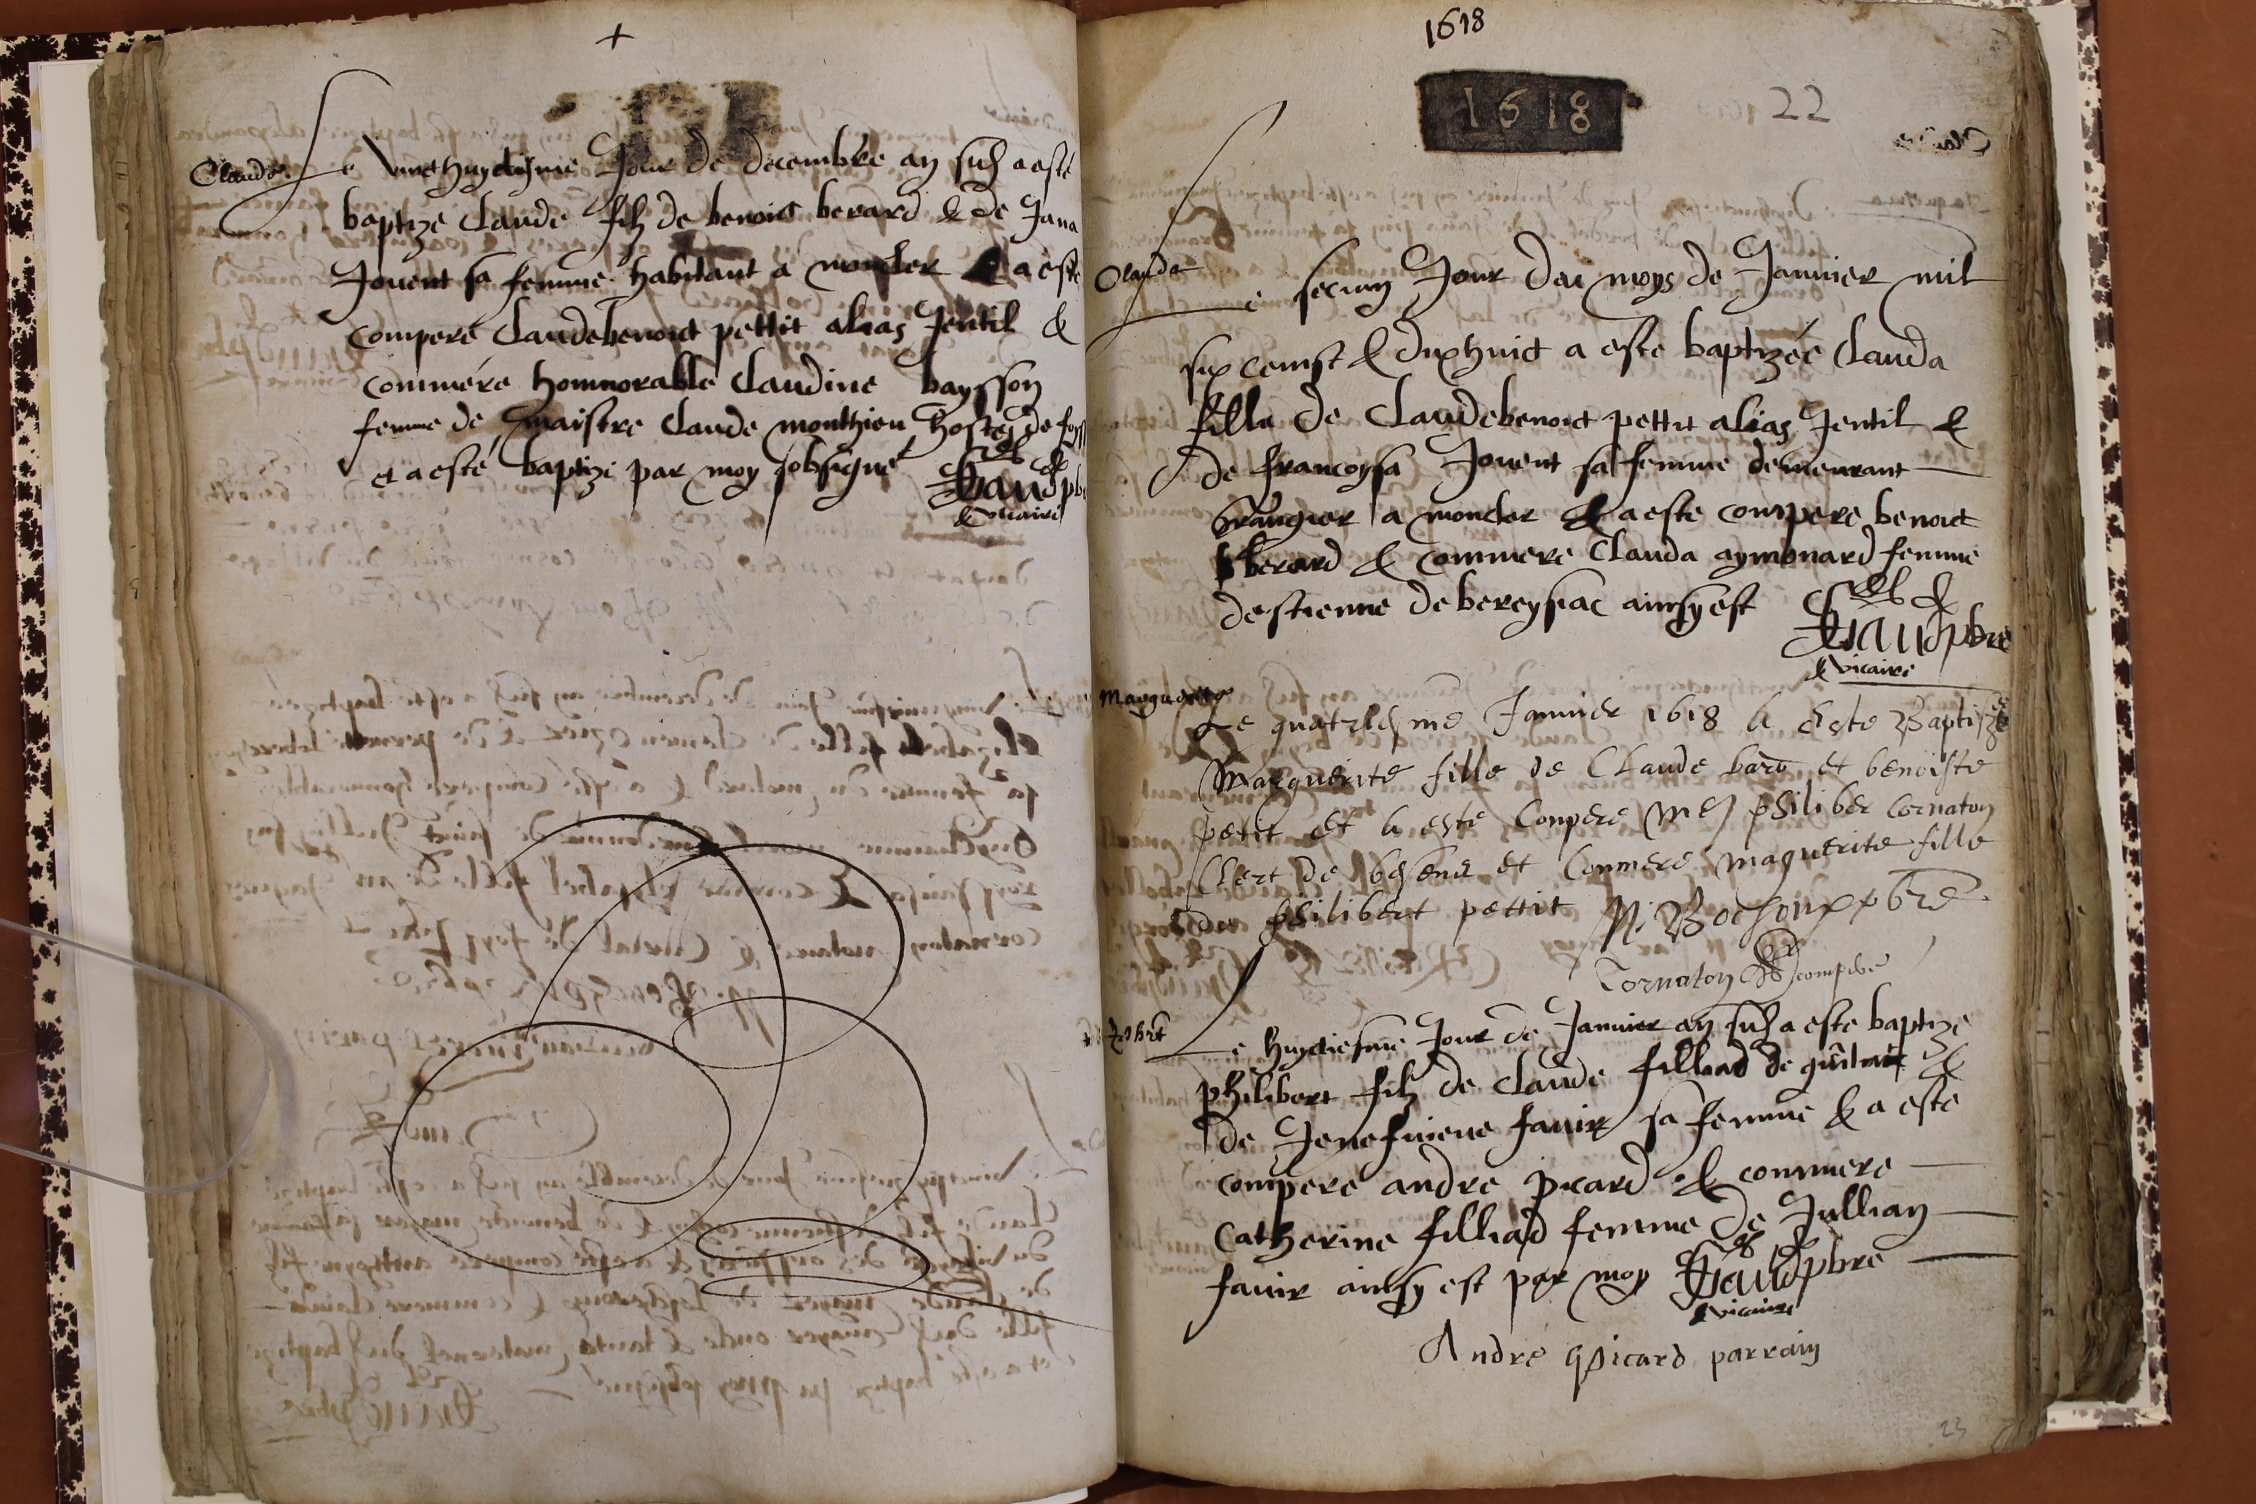 Claude
Le vingthuictiesme Jour de decembre an susd a esté
baptizé Claude filz de benoict berard & de Jana
Jouent sa femme habitant a moncler & a esté
compere Claudebenoict pettit alias Jentil &
commére honnorable Claudine baysson
femme de maistre Claude monthieu hoste de
et a esté baptizé par moy sobsigné
pbr
& vicaire
1618
1618
22
Clauda
Le secun Jour du moys de Janvier mil
six censt & dixhuict a este baptizée Clauda
fille de Claudebenoict pettit alias Jentil &
de francoysa Jouent sa femme demeurant
grangier a moncler & a este compere benoict
berard & commere Clauda aymonard femme
destienne de bereysiac ainsy est
pbre
& vicaire
Marguerite
Le quatriesme Janvier 1618 A Este Baptizée
Marguerite fille de Claude baro et benoiste
petit et A este Compere Me philiber Cornaton
Clert de et Commere Maguerite fille
de philibert pettit N. Bochoux pbre
Cornaton compere
Le huytiesme Jour de Janvier an susd a este baptizé
philibert filz de Claude filliad de &
de Jenefvieve favir sa femme & a este
compere andre picard & commere
Catherine filliad femme de Jullian
favir ainsy est par moy pbre
& vicaire
Andre Picard parrain
23